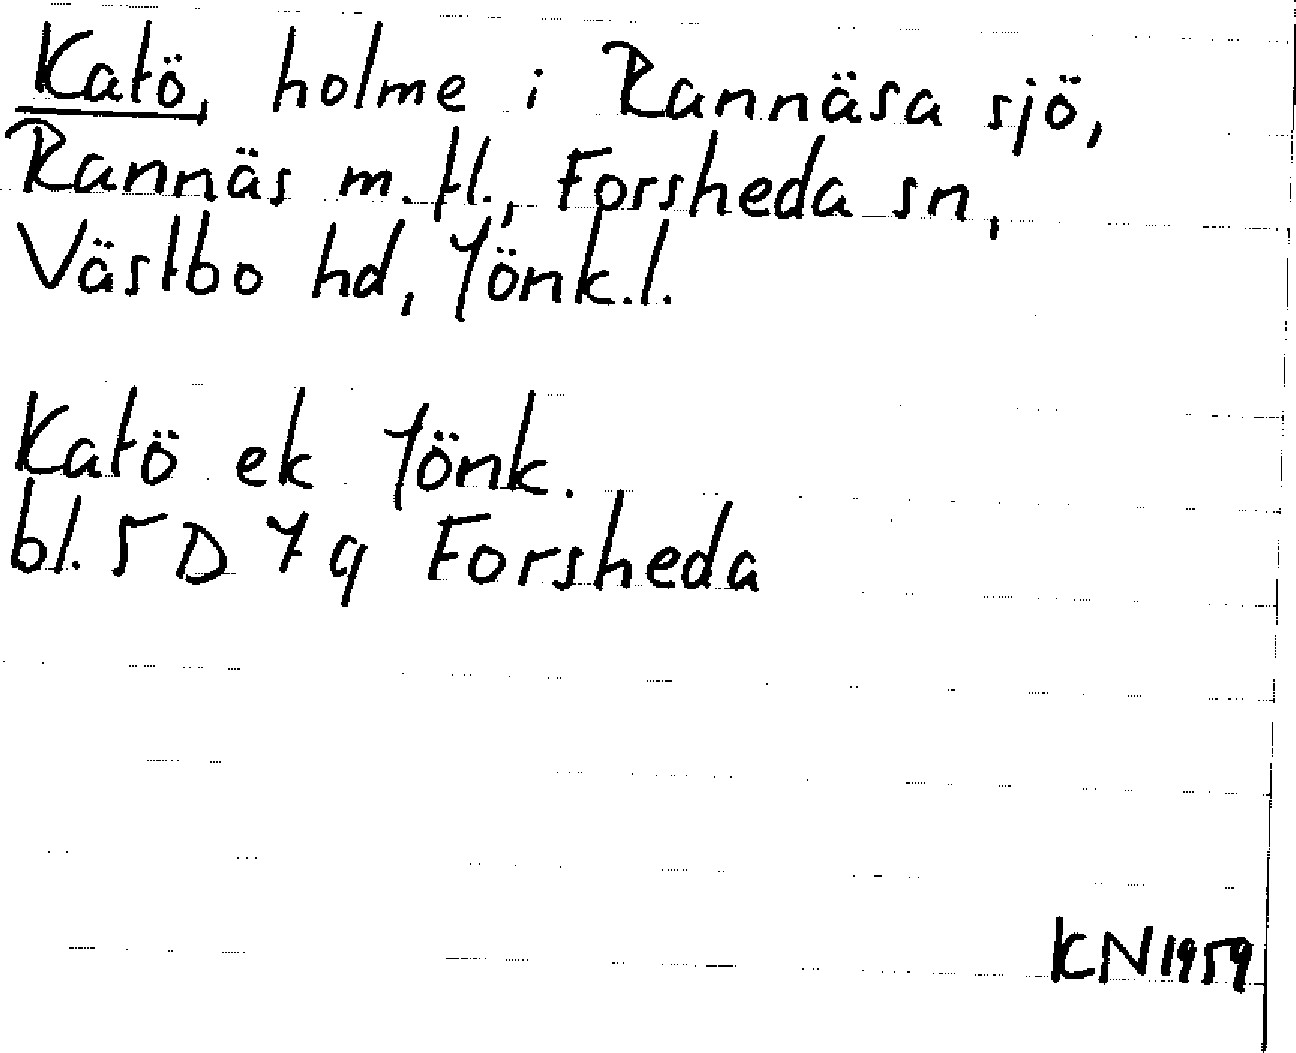 Katö, holme i Rannäsa sjö,
Rannäs m.fl., Forsheda sn,
Västbo hd, Jönk.l.
Katö ek Jönk.
bl. 5 D 7 q Forsheda
KN 1959